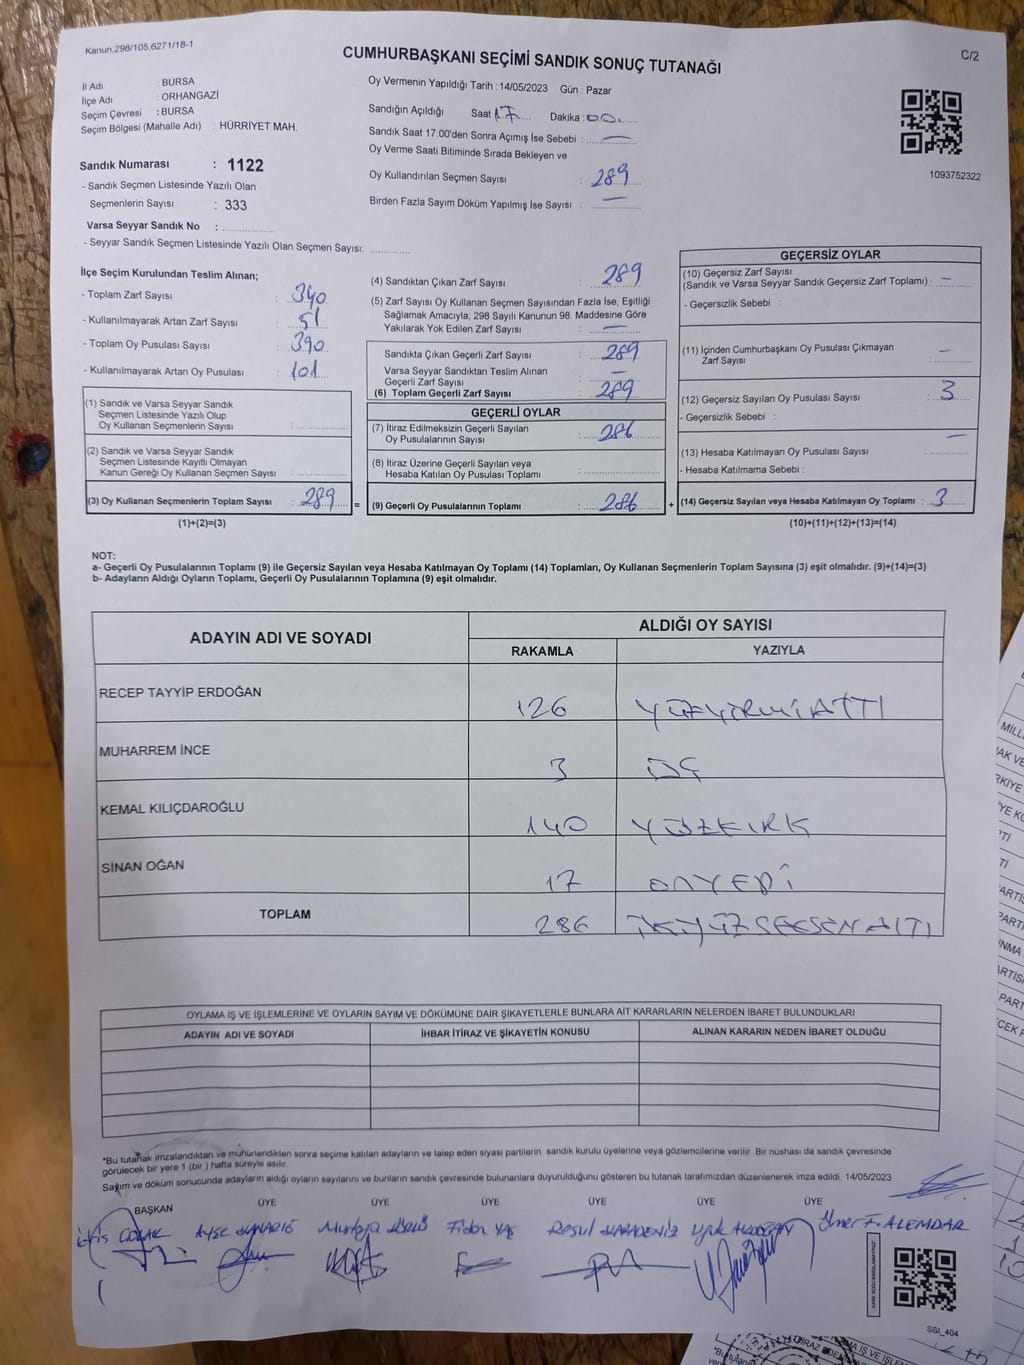 Kanun.298/105,6271/18-1
CUMHURBAŞKANI SEÇİMİ SANDIK SONUÇ TUTANAĞI
C/2
İl Adı : BURSA
İlçe Adı : ORHANGAZİ
Seçim Çevresi : BURSA
Seçim Bölgesi (Mahalle Adı) : HÜRRİYET MAH.
Oy Vermenin Yapıldığı Tarih : 14/05/2023 Gün : Pazar
Sandığın Açıldığı Saat 17 Dakika : 00
Sandık Saat 17:00'den Sonra Açımış İse Sebebi : —
Oy Verme Saati Bitiminde Sırada Bekleyen ve
Oy Kullandırılan Seçmen Sayısı : 289
Birden Fazla Sayım Döküm Yapılmış İse Sayısı : —
1093752322
Sandık Numarası : 1122
- Sandık Seçmen Listesinde Yazılı Olan
Seçmenlerin Sayısı : 333
Varsa Seyyar Sandık No :
- Seyyar Sandık Seçmen Listesinde Yazılı Olan Seçmen Sayısı:
İlçe Seçim Kurulundan Teslim Alınan;
- Toplam Zarf Sayısı : 340
- Kullanılmayarak Artan Zarf Sayısı : 51
- Toplam Oy Pusulası Sayısı : 390
- Kullanılmayarak Artan Oy Pusulası : 101
(1) Sandık ve Varsa Seyyar Sandık
Seçmen Listesinde Yazılı Olup
Oy Kullanan Seçmenlerin Sayısı :
(2) Sandık ve Varsa Seyyar Sandık
Seçmen Listesinde Kayıtlı Olmayan
Kanun Gereği Oy Kullanan Seçmen Sayısı :
(3) Oy Kullanan Seçmenlerin Toplam Sayısı : 289 =
(1)+(2)=(3)
(4) Sandıktan Çıkan Zarf Sayısı : 289
(5) Zarf Sayısı Oy Kullanan Seçmen Sayısından Fazla İse, Eşitliği
Sağlamak Amacıyla; 298 Sayılı Kanunun 98. Maddesine Göre
Yakılarak Yok Edilen Zarf Sayısı : —
Sandıkta Çıkan Geçerli Zarf Sayısı : 289
Varsa Seyyar Sandıktan Teslim Alınan
Geçerli Zarf Sayısı : —
(6) Toplam Geçerli Zarf Sayısı : 289
GEÇERLİ OYLAR
(7) İtiraz Edilmeksizin Geçerli Sayılan
Oy Pusulalarının Sayısı : 286
(8) İtiraz Üzerine Geçerli Sayılan veya
Hesaba Katılan Oy Pusulası Toplamı :
(9) Geçerli Oy Pusulalarının Toplamı : 286 +
GEÇERSİZ OYLAR
(10) Geçersiz Zarf Sayısı
(Sandık ve Varsa Seyyar Sandık Geçersiz Zarf Toplamı) : —
- Geçersizlik Sebebi :
(11) İçinden Cumhurbaşkanı Oy Pusulası Çıkmayan
Zarf Sayısı : —
(12) Geçersiz Sayılan Oy Pusulası Sayısı : 3
- Geçersizlik Sebebi :
(13) Hesaba Katılmayan Oy Pusulası Sayısı : —
- Hesaba Katılmama Sebebi :
(14) Geçersiz Sayılan veya Hesaba Katılmayan Oy Toplamı : 3
(10)+(11)+(12)+(13)=(14)
NOT:
a- Geçerli Oy Pusulalarının Toplamı (9) ile Geçersiz Sayılan veya Hesaba Katılmayan Oy Toplamı (14) Toplamları, Oy Kullanan Seçmenlerin Toplam Sayısına (3) eşit olmalıdır. (9)+(14)=(3)
b- Adayların Aldığı Oyların Toplamı, Geçerli Oy Pusulalarının Toplamına (9) eşit olmalıdır.
ADAYIN ADI VE SOYADI ALDIĞI OY SAYISI
RAKAMLA YAZIYLA
RECEP TAYYİP ERDOĞAN 126 YÜZYİRMİATTI
MUHARREM İNCE 3 ÜÇ
KEMAL KILIÇDAROĞLU 140 YÜZKIRK
SİNAN OĞAN 17 ONYEDİ
TOPLAM 286 İKİYÜZSEKSENALTI
OYLAMA İŞ VE İŞLEMLERİNE VE OYLARIN SAYIM VE DÖKÜMÜNE DAİR ŞİKAYETLERLE BUNLARA AİT KARARLARIN NELERDEN İBARET BULUNDUKLARI
ADAYIN ADI VE SOYADI İHBAR İTİRAZ VE ŞİKAYETİN KONUSU ALINAN KARARIN NEDEN İBARET OLDUĞU
*Bu tutanak imzalandıktan ve mühürlendikten sonra seçime katılan adayların ve talep eden siyasi partilerin sandık kurulu üyelerine veya gözlemcilerine verilir. Bir nüshası da sandık çevresinde
görülecek bir yere 1 (bir ) hafta süreyle asılır.
Sayım ve döküm sonucunda adayların aldığı oyların sayılarını ve bunların sandık çevresinde bulunanlara duyurulduğunu gösteren bu tutanak tarafımızdan düzenlenerek imza edildi. 14/05/2023
BAŞKAN ÜYE ÜYE ÜYE ÜYE ÜYE ÜYE
Ayşe Mustafa Fidan Resul KARADENİZ Ömer F. ALEMDAR
SSI_404